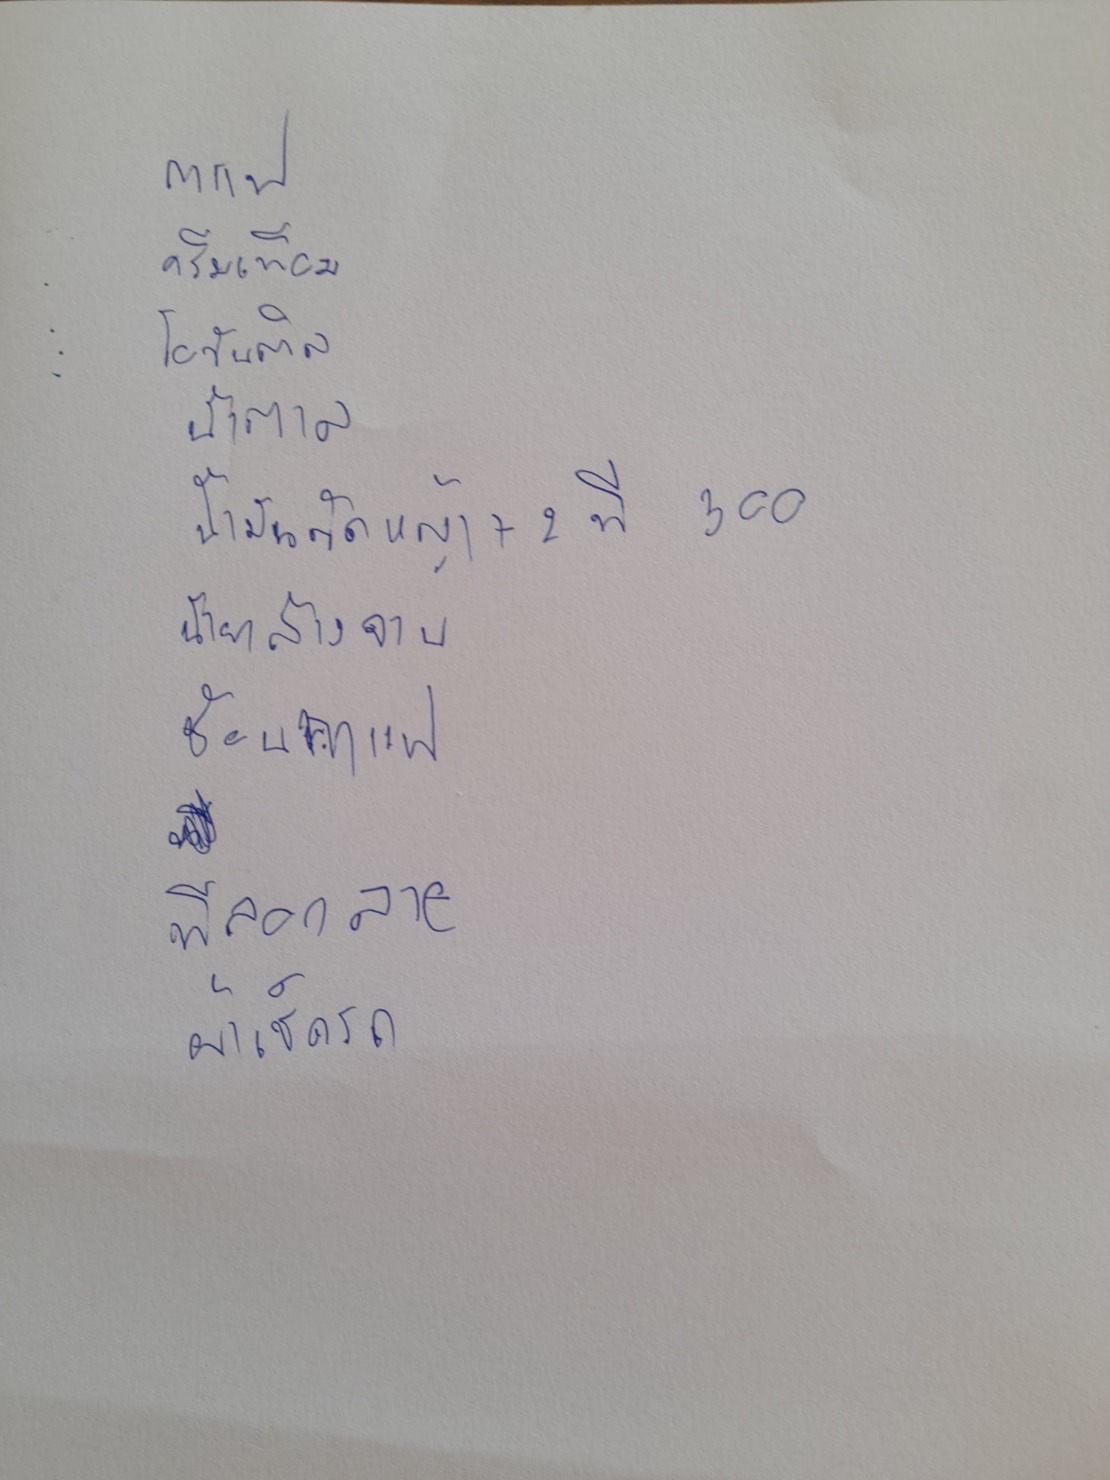 กาแฟ
ครีมเทียม
โอวันติล
น้ำตาล
น้ำมันตัดหญ้า + 2 ที 300
น้ำยาล้างจาน
ช้อนกาแฟ
ผ้าเช็ดรถ